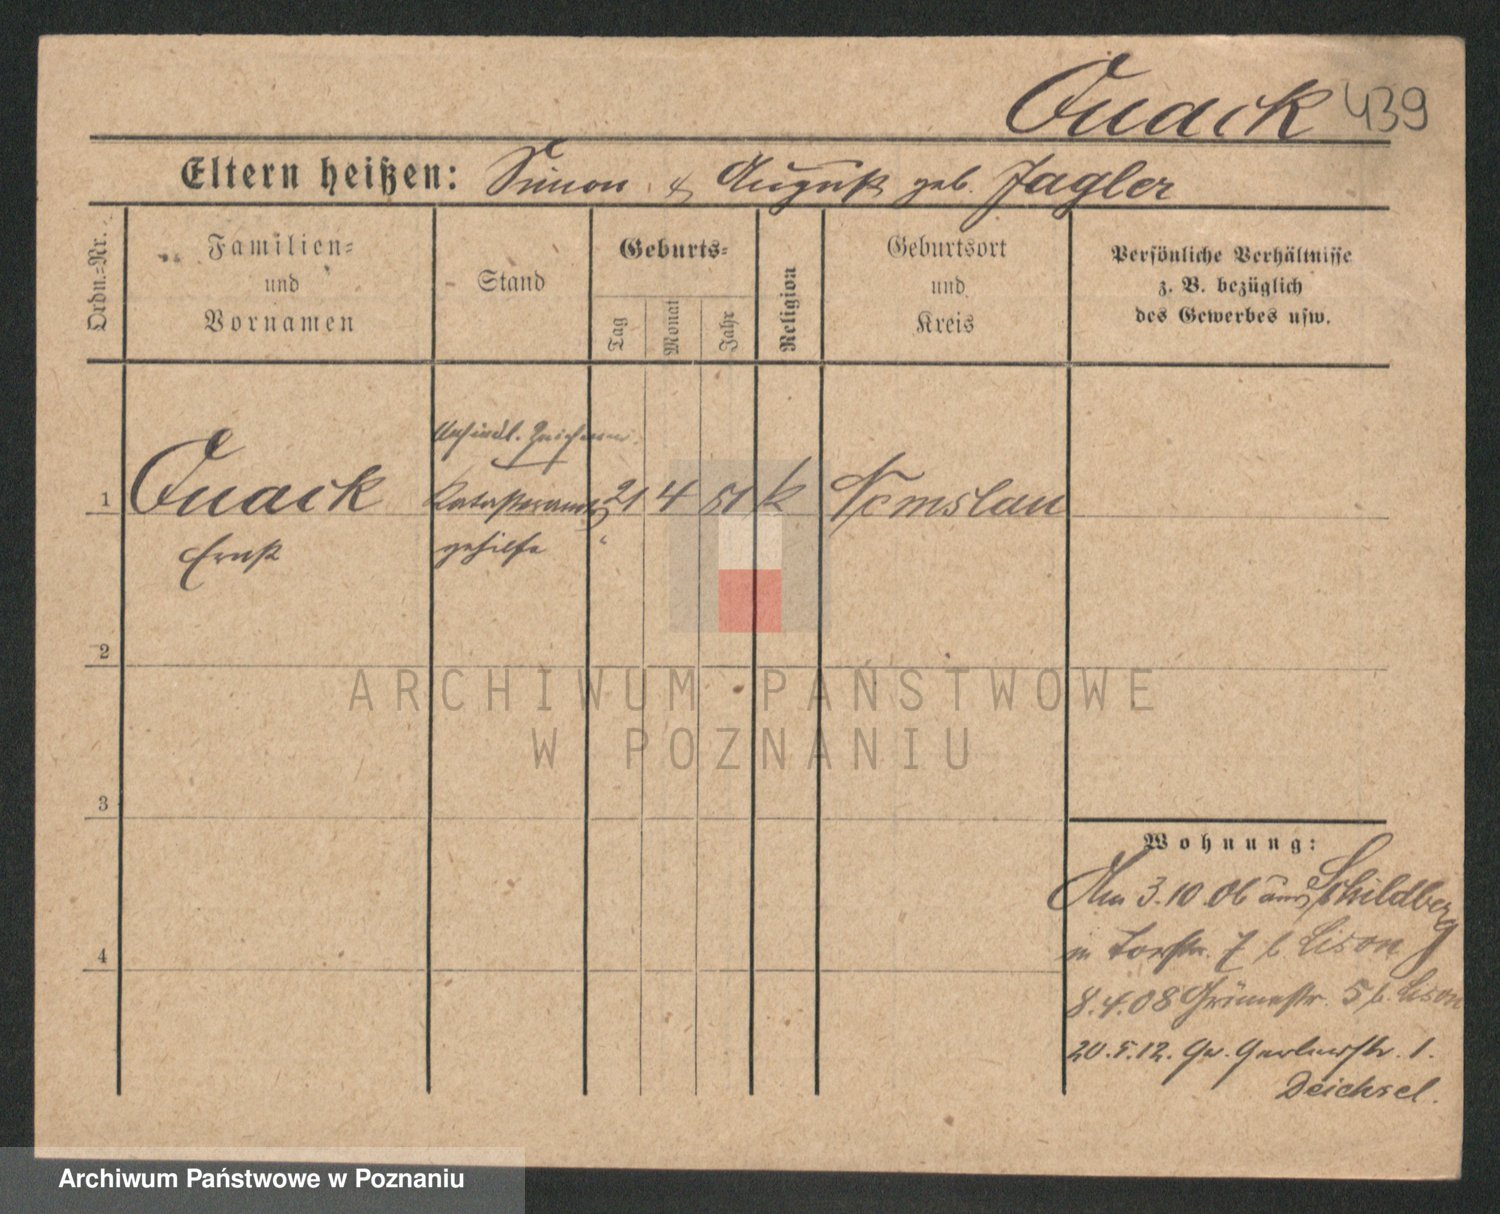 Quack 439
Eltern heißen: Simon & August geb. Jagler
Ordn.=Nr.
Familien=
und
Vornamen
Stand
Geburts=
Tag
Monat
Jahr
Religion
Geburtsort
und
Kreis
Persönliche Verhältnisse
z. B. bezüglich
des Gewerbes usw.
1 Quack Katasteramts 21 4 51 k Namslau
Ernst gehilfe
2
3
4
Wohnung:
Am 3.10.06 aus Schildberg
in Torstr. 7 b Lison
8.4.08 Grünestr. 5 b. Lison
20.5.12. Gr. Gerberstr. 1.
Deichsel.
ARCHIWUM PAŃSTWOWE
W POZNANIU
Archiwum Państwowe w Poznaniu